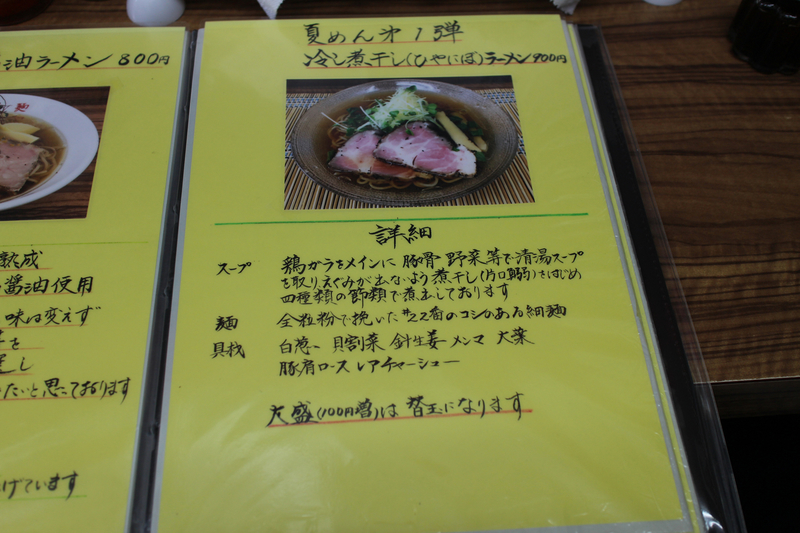 油ラーメン 800円
熟成
醤油使用
味は変えず
を
足し
たいと思っております
げています
夏めん㐧1弾
冷し煮干し(ひやにぼ)ラーメン900円
詳細
スープ 鶏ガラをメインに 豚骨 野菜等で清湯スープ
を取りえぐみが出ないよう煮干し(片口鰯)をはじめ
四種類の節類で煮出しております
麺 全粒粉で挽いた#22番のコシのある細麺
具材 白葱 貝割菜 針生姜 メンマ 大葉
豚肩ロースレアチャーシュー
大盛(100円増)は 替玉になります